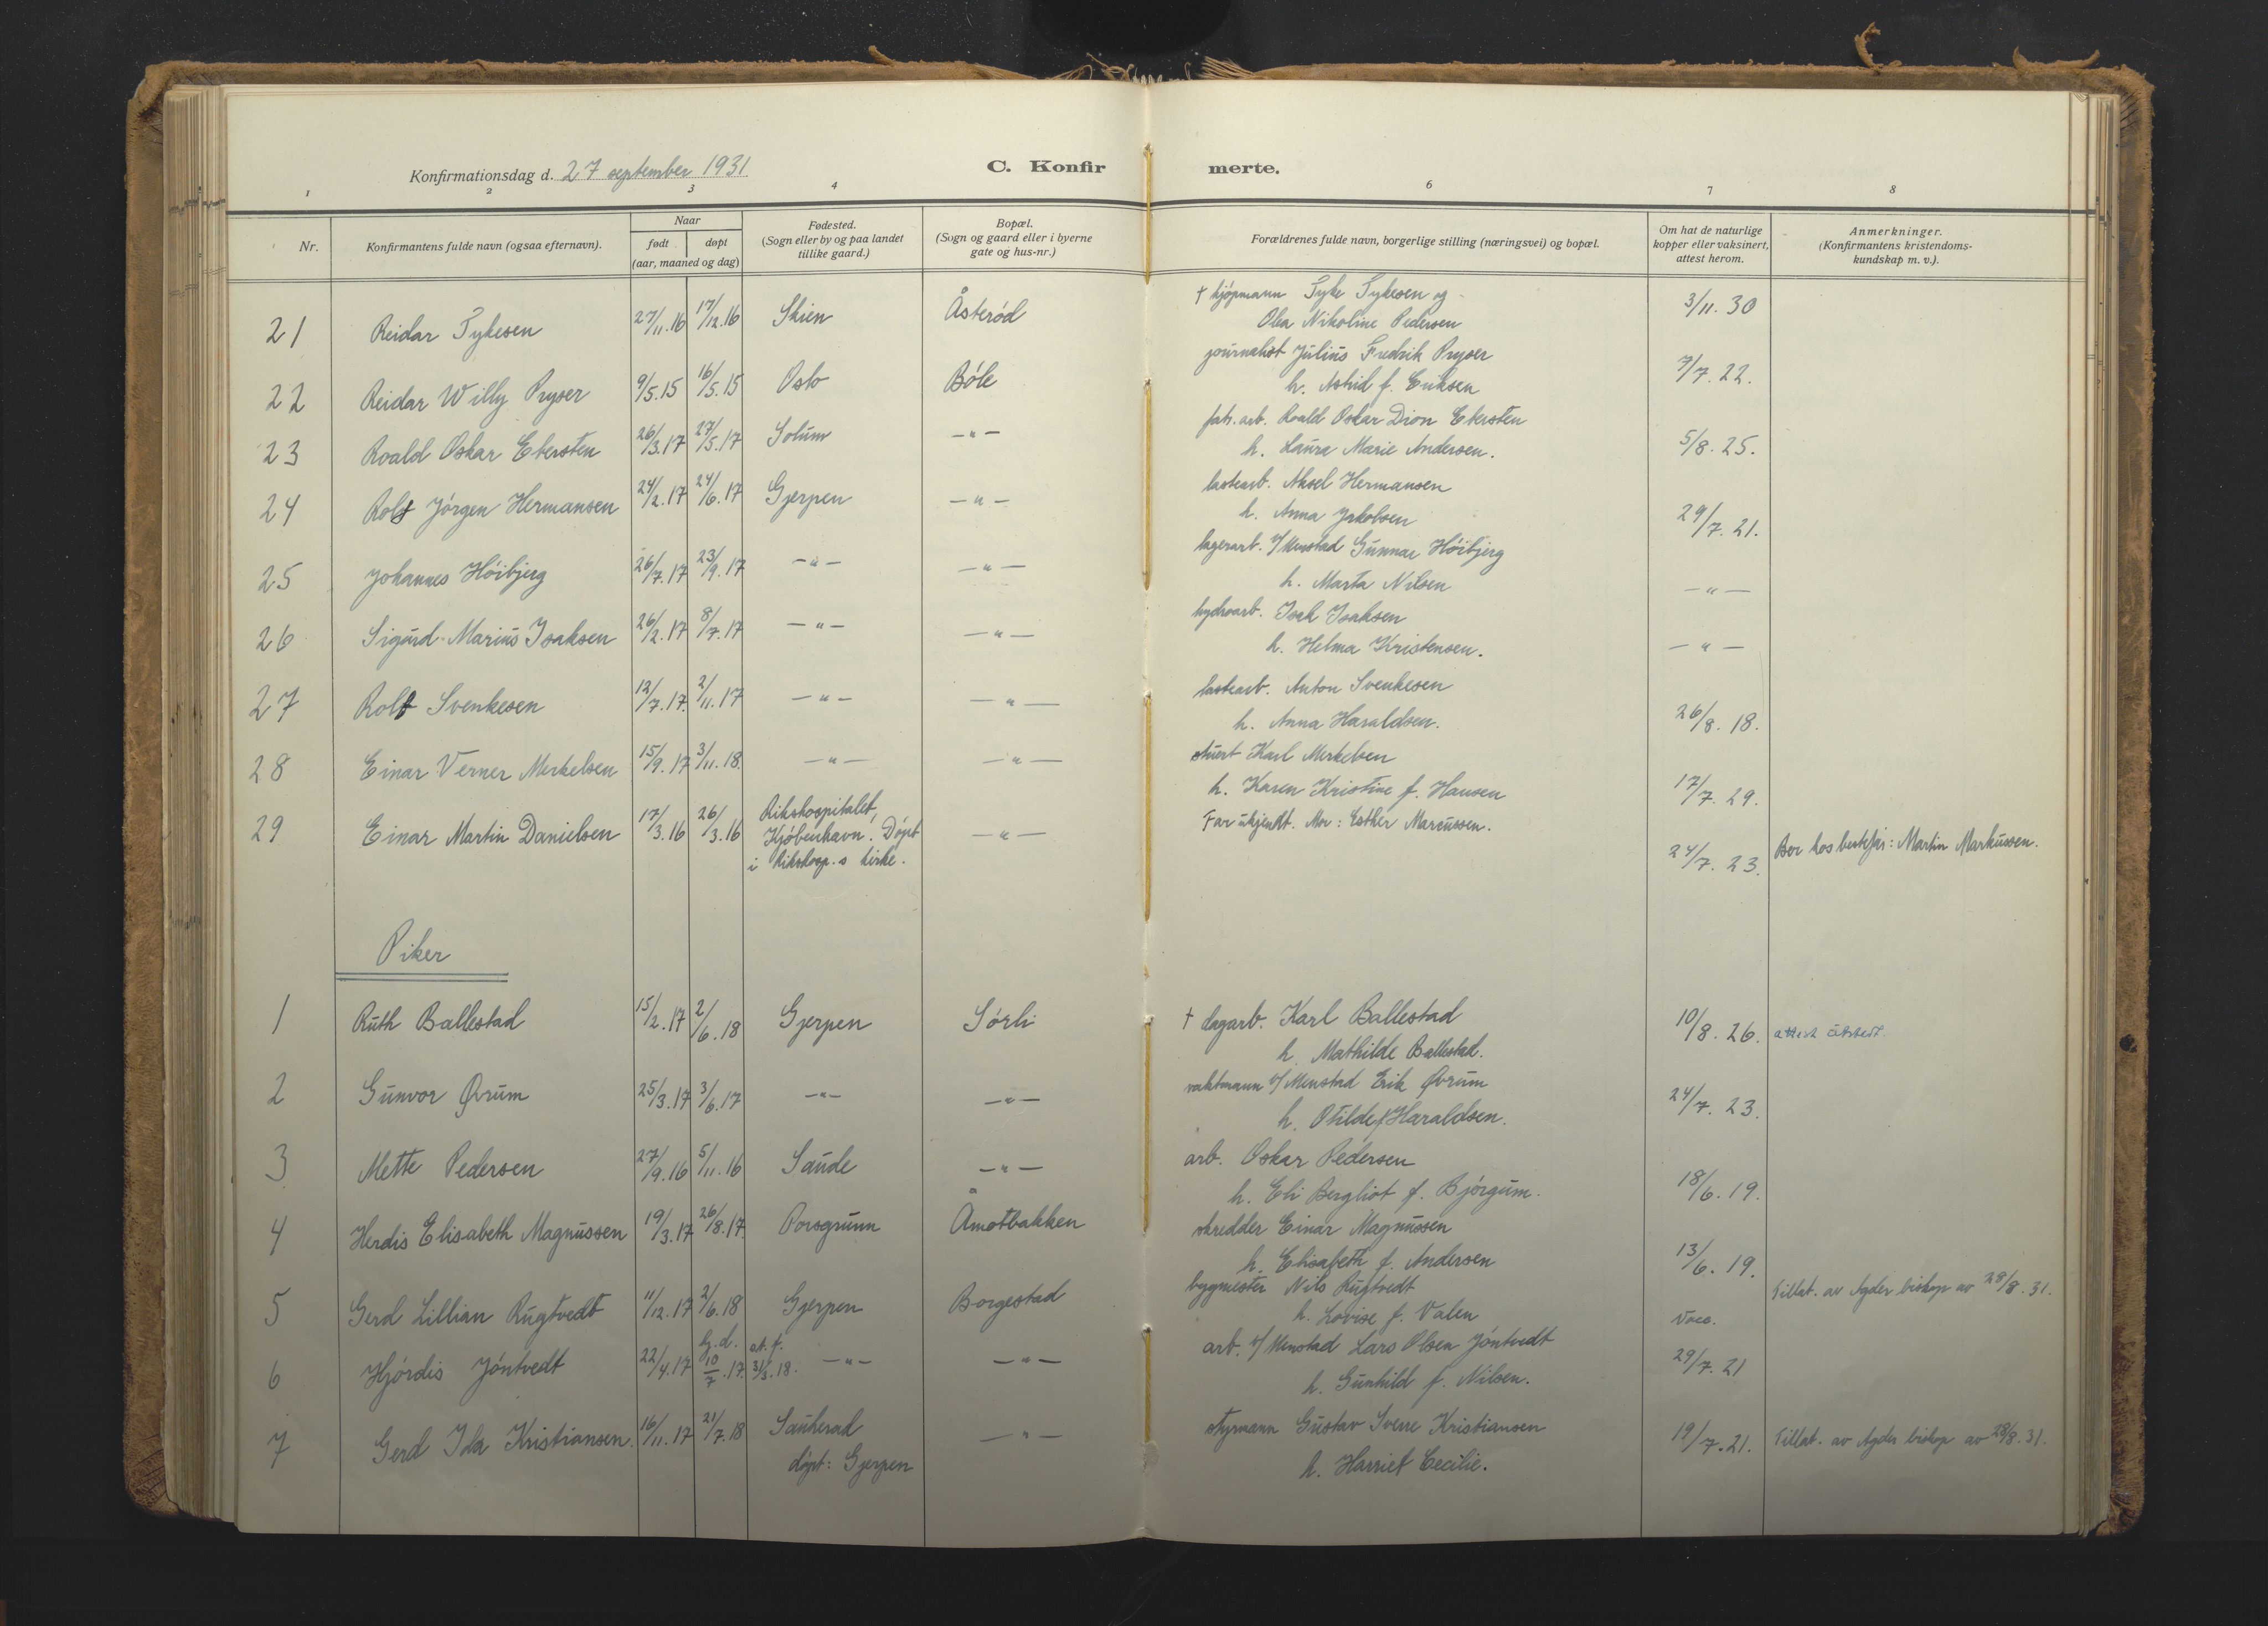 Konfirmationsdag d. 27 september 1931
C. Konfirmerte.
1 2 3 4 6 7 8
Nr. Konfirmantens fulde navn (ogsaa efternavn). Naar født døpt (aar, maaned og dag) Fødested. (Sogn eller by og paa landet tillike gaard.) Bopæl. (Sogn og gaard eller i byerne gate og hus-nr.) Forældrenes fulde navn, borgerlige stilling (næringsvei) og bopæl. Om hat de naturlige kopper eller vaksinert, attest herom. Anmerkninger. (Konfirmantens kristendomskundskap m. v.).
21 Reidar Tykesen 27/11.16 17/12.16 Skien Åsterød † kjøpmann Tyke Tykesen og 3/11.30
Olea Nikoline Pedersen
22 Reidar Willy Pryser 9/5.15 16/5.15 Oslo Bøle journalist Julius Fredrik Pryser 7/7.22.
h. Astrid f. Eriksen
23 Roald Oskar Ebersten 26/3.17 27/5.17 Solum -"- fabr. arb. Roald Oskar Dion Ebersten 5/8.25.
h. Laura Marie Andersen.
24 Rolf Jørgen Hermansen 24/2.17 24/6.17 Gjerpen -"- lastearb. Aksel Hermansen
h. Anna Jakobsen 29/7.21.
25 Johannes Höibjerg 26/7.17 23/9.17 -"- -"- lagerarb. v/ Menstad Gunnar Höibjerg
h. Marta Nilsen -"-
26 Sigurd Marius Isaksen 26/2.17 8/7.17 -"- -"- hydroarb. Isak Isaksen
h. Helma Kristensen. -"-
27 Rolf Svenkesen 12/7.17. 2/11.17 -"- -"- lastearb. Anton Svenkesen
h. Anna Haraldsen. 26/8.18.
28 Einar Verner Merkelsen 15/9.17 3/11.18. -"- -"- stuert Karl Merkelsen
h. Karen Kristine f. Hansen 17/7.29.
29 Einar Martin Danielsen 17/3.16 26/3.16 Rikshospitalet, Kjøbenhavn. Døpt i Rikshosp.s kirke. -"- Far ukjendt. Mor: Esther Marcussen. 24/7.23. Bor hos bestefar: Martin Markussen.
Piker
1 Ruth Ballestad 15/2.17 2/6.18 Gjerpen Sørli † dagarb. Karl Ballestad 10/8.26. attest utstedt.
h. Mathilde Ballestad.
2 Gunvor Ørum 25/3.17 3/6.17 -"- -"- vaktmann v/ Menstad Erik Ørum 24/7.23.
h. Otilde f Haraldsen.
3 Mette Pedersen 27/9.16 5/11.16 Saude -"- arb. Oskar Pedersen 18/6.19.
h. Eli Bergliot f. Bjørgum.
4 Herdis Elisabeth Magnussen 19/3.17 26/8.17. Porsgrunn Åmotbakken skredder Einar Magnussen
h. Elisabeth f. Andersen 13/6.19.
5 Gerd Lillian Rugtvedt 11/12.17 2/6.18 Gjerpen Borgestad bygmester Nils Rugtvedt Tillat. av Agder biskop av 28/8.31.
h. Lovise f. Valen Vacc.
6 Hjørdis Jøntvedt 22/4.17 hj.d. 10/7.17. st.f. 31/3.18. -"- -"- arb. v/ Menstad Lars Olsen Jøntvedt 29/7.21
h. Gunhild f. Nilsen.
7 Gerd Ida Kristiansen 16/11.17 21/7.18 Sauherad døpt: Gjerpen -"- styrmann Gustav Sverre Kristiansen 19/7.21. Tillat. av Agder biskop av 28/8.31.
h. Harriet Cecilie.